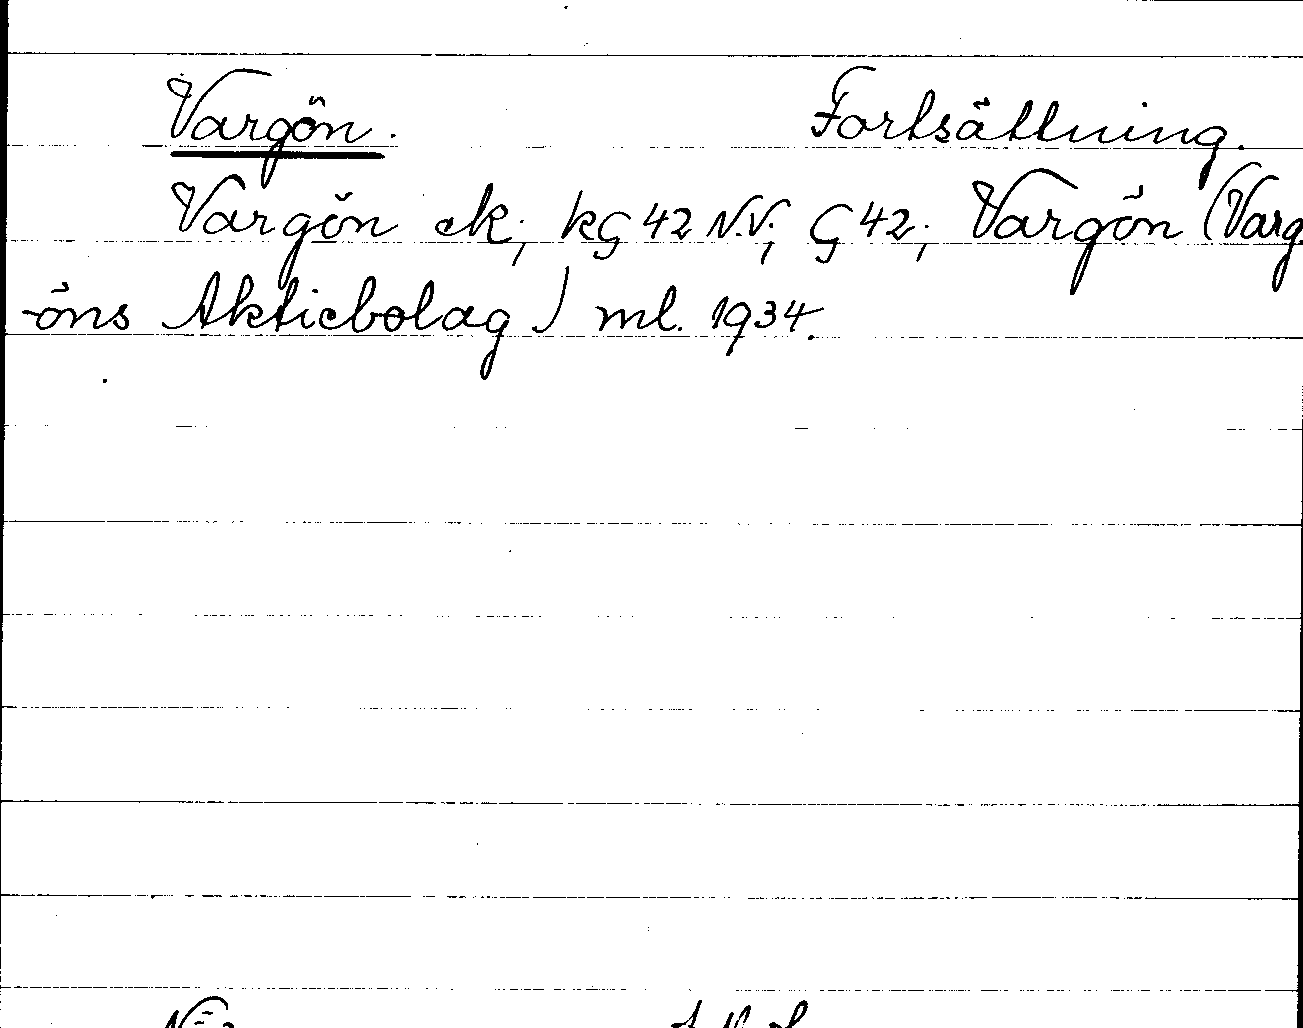 Vargön. Fortsättning.
Vargön ek; kG 42 N.V; G 42; Vargön (Varg
-öns Aktiebolag) ml. 1934.